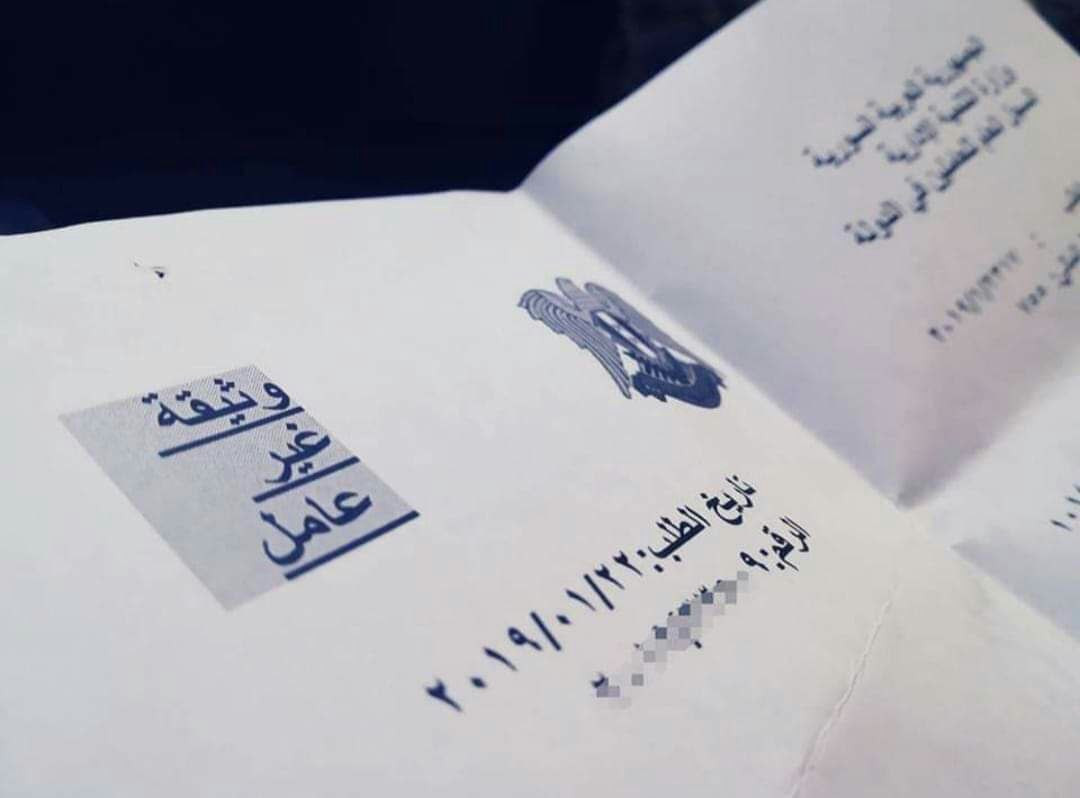 الجمهورية العربية السورية
وزارة التنمية الإدارية
السجل العام للعاملين في الدولة
وثيقة
غير
عامل
تاريخ الطلب: ٢٠١٩/٠١/٢٢
الرقم: ٩